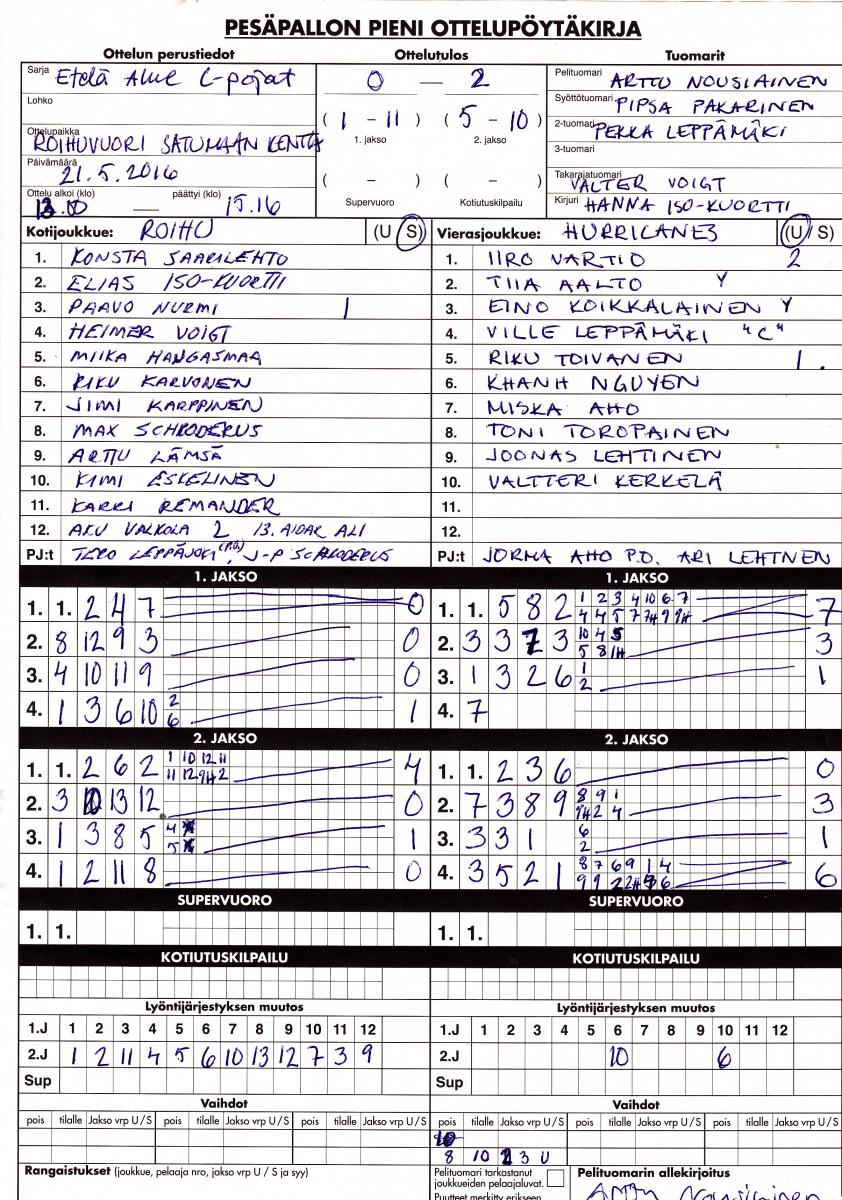 PESÄPALLON PIENI OTTELUPÖYTÄKIRJA
Ottelun perustiedot
Sarja Etelä Alue C-pojat
Lohko
Ottelupaikka ROIHUVUORI SATUMAAN KENTTÄ
Päivämäärä 21.5.2016
Ottelu alkoi (klo) päättyi (klo)
13.00 — 15.16
Ottelutulos
0 — 2
( 1 - 11 ) ( 5 - 10 )
1. jakso 2. jakso
( - ) ( - )
Supervuoro Kotiutuskilpailu
Tuomarit
Pelituomari ARTTU NOUSIAINEN
Syöttötuomari PIPSA PAKARINEN
2-tuomari PEKKA LEPPÄMÄKI
3-tuomari
Takarajatuomari VALTER VOIGT
Kirjuri HANNA ISO-KUORTTI
Kotijoukkue: ROIHU (U S)
1. KONSTA SAARILEHTO
2. ELIAS ISO-KUORTTI
3. PAAVO NURMI 1
4. HEIMER VOIGT
5. MIIKA HANGASMAA
6. RIKU KARVONEN
7. JIMI KARPPINEN
8. MAX SCHRODERUS
9. ARTTU LÄMSÄ
10. KIMI ESKELINEN
11. KARRI REMANDER
12. AKU VALKOLA 2 13. AIDAR ALI
PJ:t TERO LEPPÄJOKI (P.O.), J-P SCHRODERUS
Vierasjoukkue: HURRICANES (U / S)
1. IIRO VARTIO 2
2. TIIA AALTO Y
3. EINO KOIKKALAINEN Y
4. VILLE LEPPÄMÄKI "C"
5. RIKU TOIVANEN 1.
6. KHANH NGUYEN
7. MISKA AHO
8. TONI TOROPAINEN
9. JOONAS LEHTINEN
10. VALTTERI KERKELÄ
11.
12.
PJ:t JORMA AHO P.O. ARI LEHTNEN
1. JAKSO
1. 1. 2 4 7 0
2. 8 12 9 3 0
3. 4 10 11 9 0
4. 1 3 6 10 2 1
6
1. JAKSO
1. 1. 5 8 2 1 2 3 4 10 6 7 7
4 4 5 7 7H 9 9H
2. 3 3 7 3 10 4 5 3
5 8 1H
3. 1 3 2 6 1 1
2
4. 7
2. JAKSO
1. 1. 2 6 2 1 10 12 11 4
11 12 9H 2
2. 3 10 13 12 0
3. 1 3 8 5 4 1
5
4. 1 2 11 8 0
2. JAKSO
1. 1. 2 3 6 0
2. 7 3 8 9 8 9 1 3
9H 2 4
3. 3 3 1 6 1
2
4. 3 5 2 1 8 7 6 9 1 4 6
9 9 2 2H 6
SUPERVUORO
1. 1.
SUPERVUORO
1. 1.
KOTIUTUSKILPAILU
KOTIUTUSKILPAILU
Lyöntijärjestyksen muutos
1.J 1 2 3 4 5 6 7 8 9 10 11 12
2.J 1 2 11 4 5 6 10 13 12 7 3 9
Sup
Lyöntijärjestyksen muutos
1.J 1 2 3 4 5 6 7 8 9 10 11 12
2.J 10 6
Sup
Vaihdot
pois tilalle Jakso vrp U / S pois tilalle Jakso vrp U / S pois tilalle Jakso vrp U / S
Vaihdot
pois tilalle Jakso vrp U / S pois tilalle Jakso vrp U / S pois tilalle Jakso vrp U / S
8 10 2 3 U
Rangaistukset (joukkue, pelaaja nro, jakso vrp U / S ja syy)
Pelituomari tarkastanut
joukkueiden pelaajaluvat.
Puutteet merkitty erikseen
Pelituomarin allekirjoitus